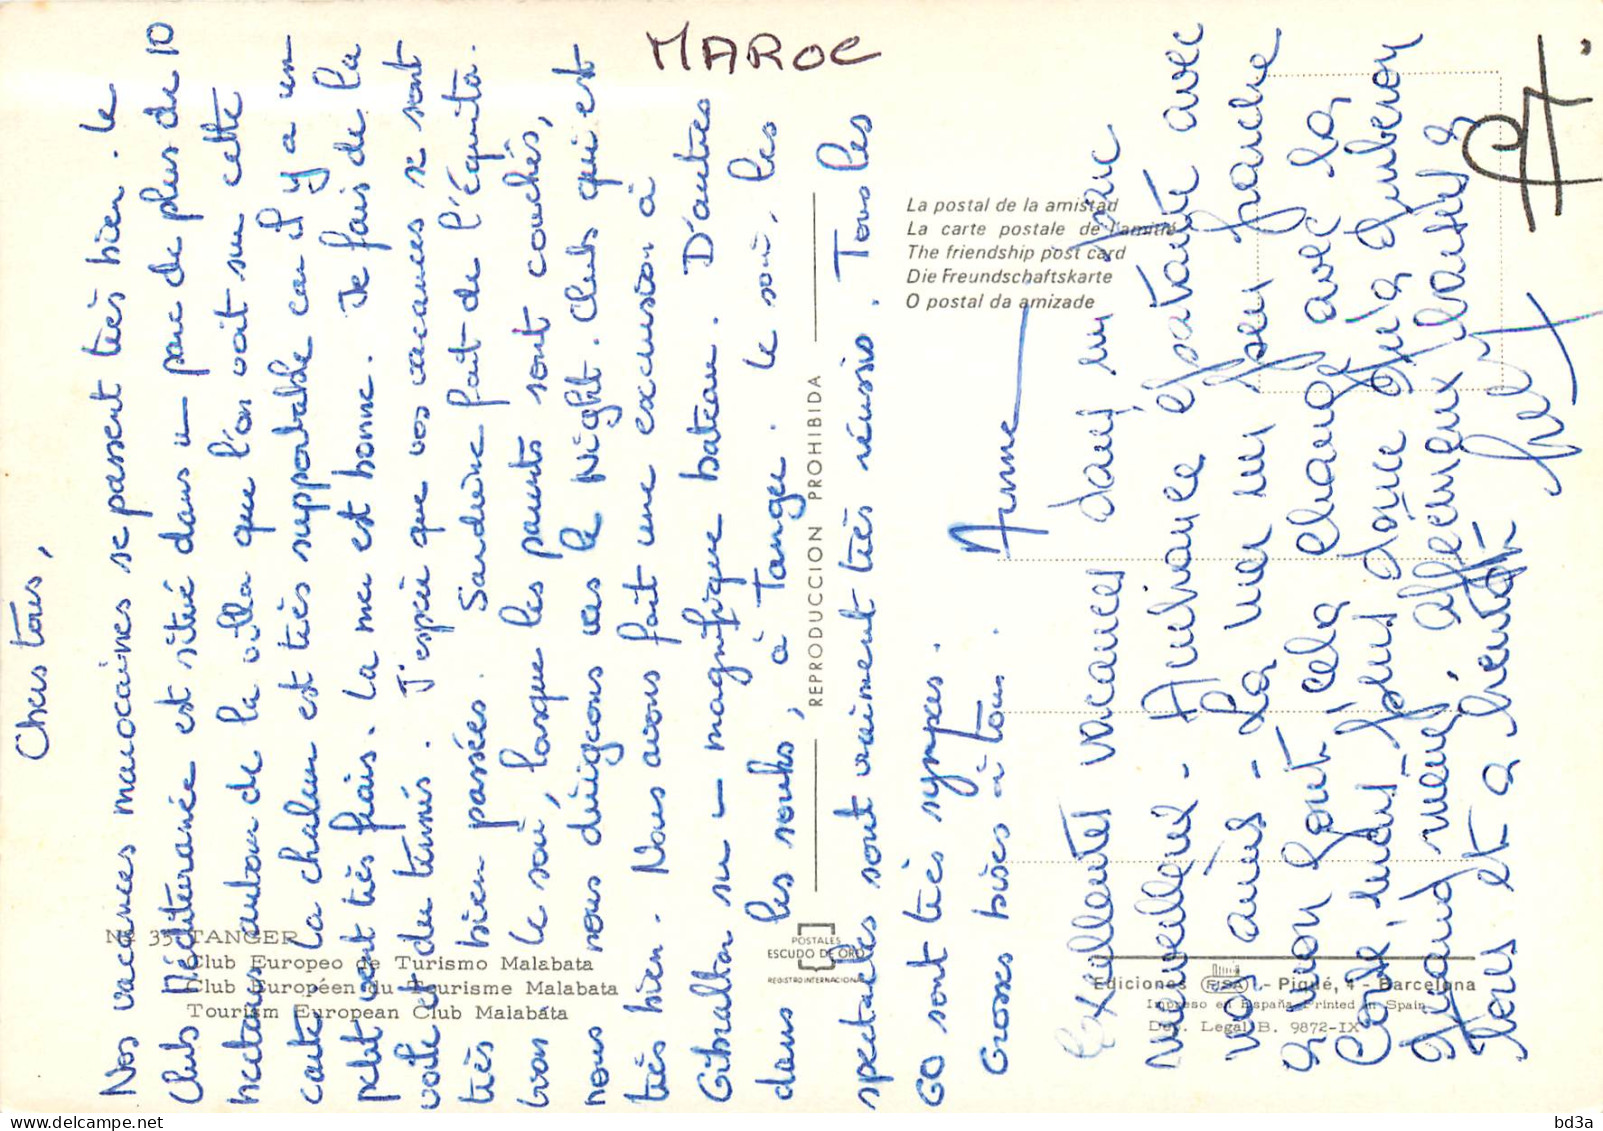 MAROC
Chers tous,
Nos vacances marocaines se passent très bien. Le
Club Méditerranée est situé dans un parc de plus de 10
hectares autour de la villa que l'on voit sur cette
carte. La chaleur est très supportable car il y a un
petit vent très frais. La mer est bonne. Je fais de la
voile et du tennis. J'espère que vos vacances se sont
très bien passées. Sandrine fait de l'équita.
bon le soir, lorsque les parents sont couchés,
nous nous dirigeons vers le Night. Clubs qui est
très bien. Nous avons fait une excursion à
Gibraltar sur un magnifique bateau. D'autres
dans les souks, à Tanger. Le soir, les
spectacles sont vraiment très réussis. Tous les
GO sont très sympas.
Grosses bises à tous. Anne
Excellentes vacances dans un parc
merveilleux - Ambiance épatante avec
vos amis - La mer un peu fraiche
à mon gout cela change avec la
Corse mais plus douce qu'à Quiberon
Quand même, affectueux baisers à
tous et à bientôt
La postal de la amistad
La carte postale de l'amitié
The friendship post card
Die Freundschaftskarte
O postal da amizade
REPRODUCCION PROHIBIDA
Nº 35 TANGER
Club Europeo de Turismo Malabata
Club Européen du Tourisme Malabata
Tourism European Club Malabata
POSTALES
ESCUDO DE ORO
REGISTRO INTERNACIONAL
Ediciones FISA - Piqué, 4 - Barcelona
Impreso en España - Printed in Spain
Dep. Legal B. 9872-IX
bd3a